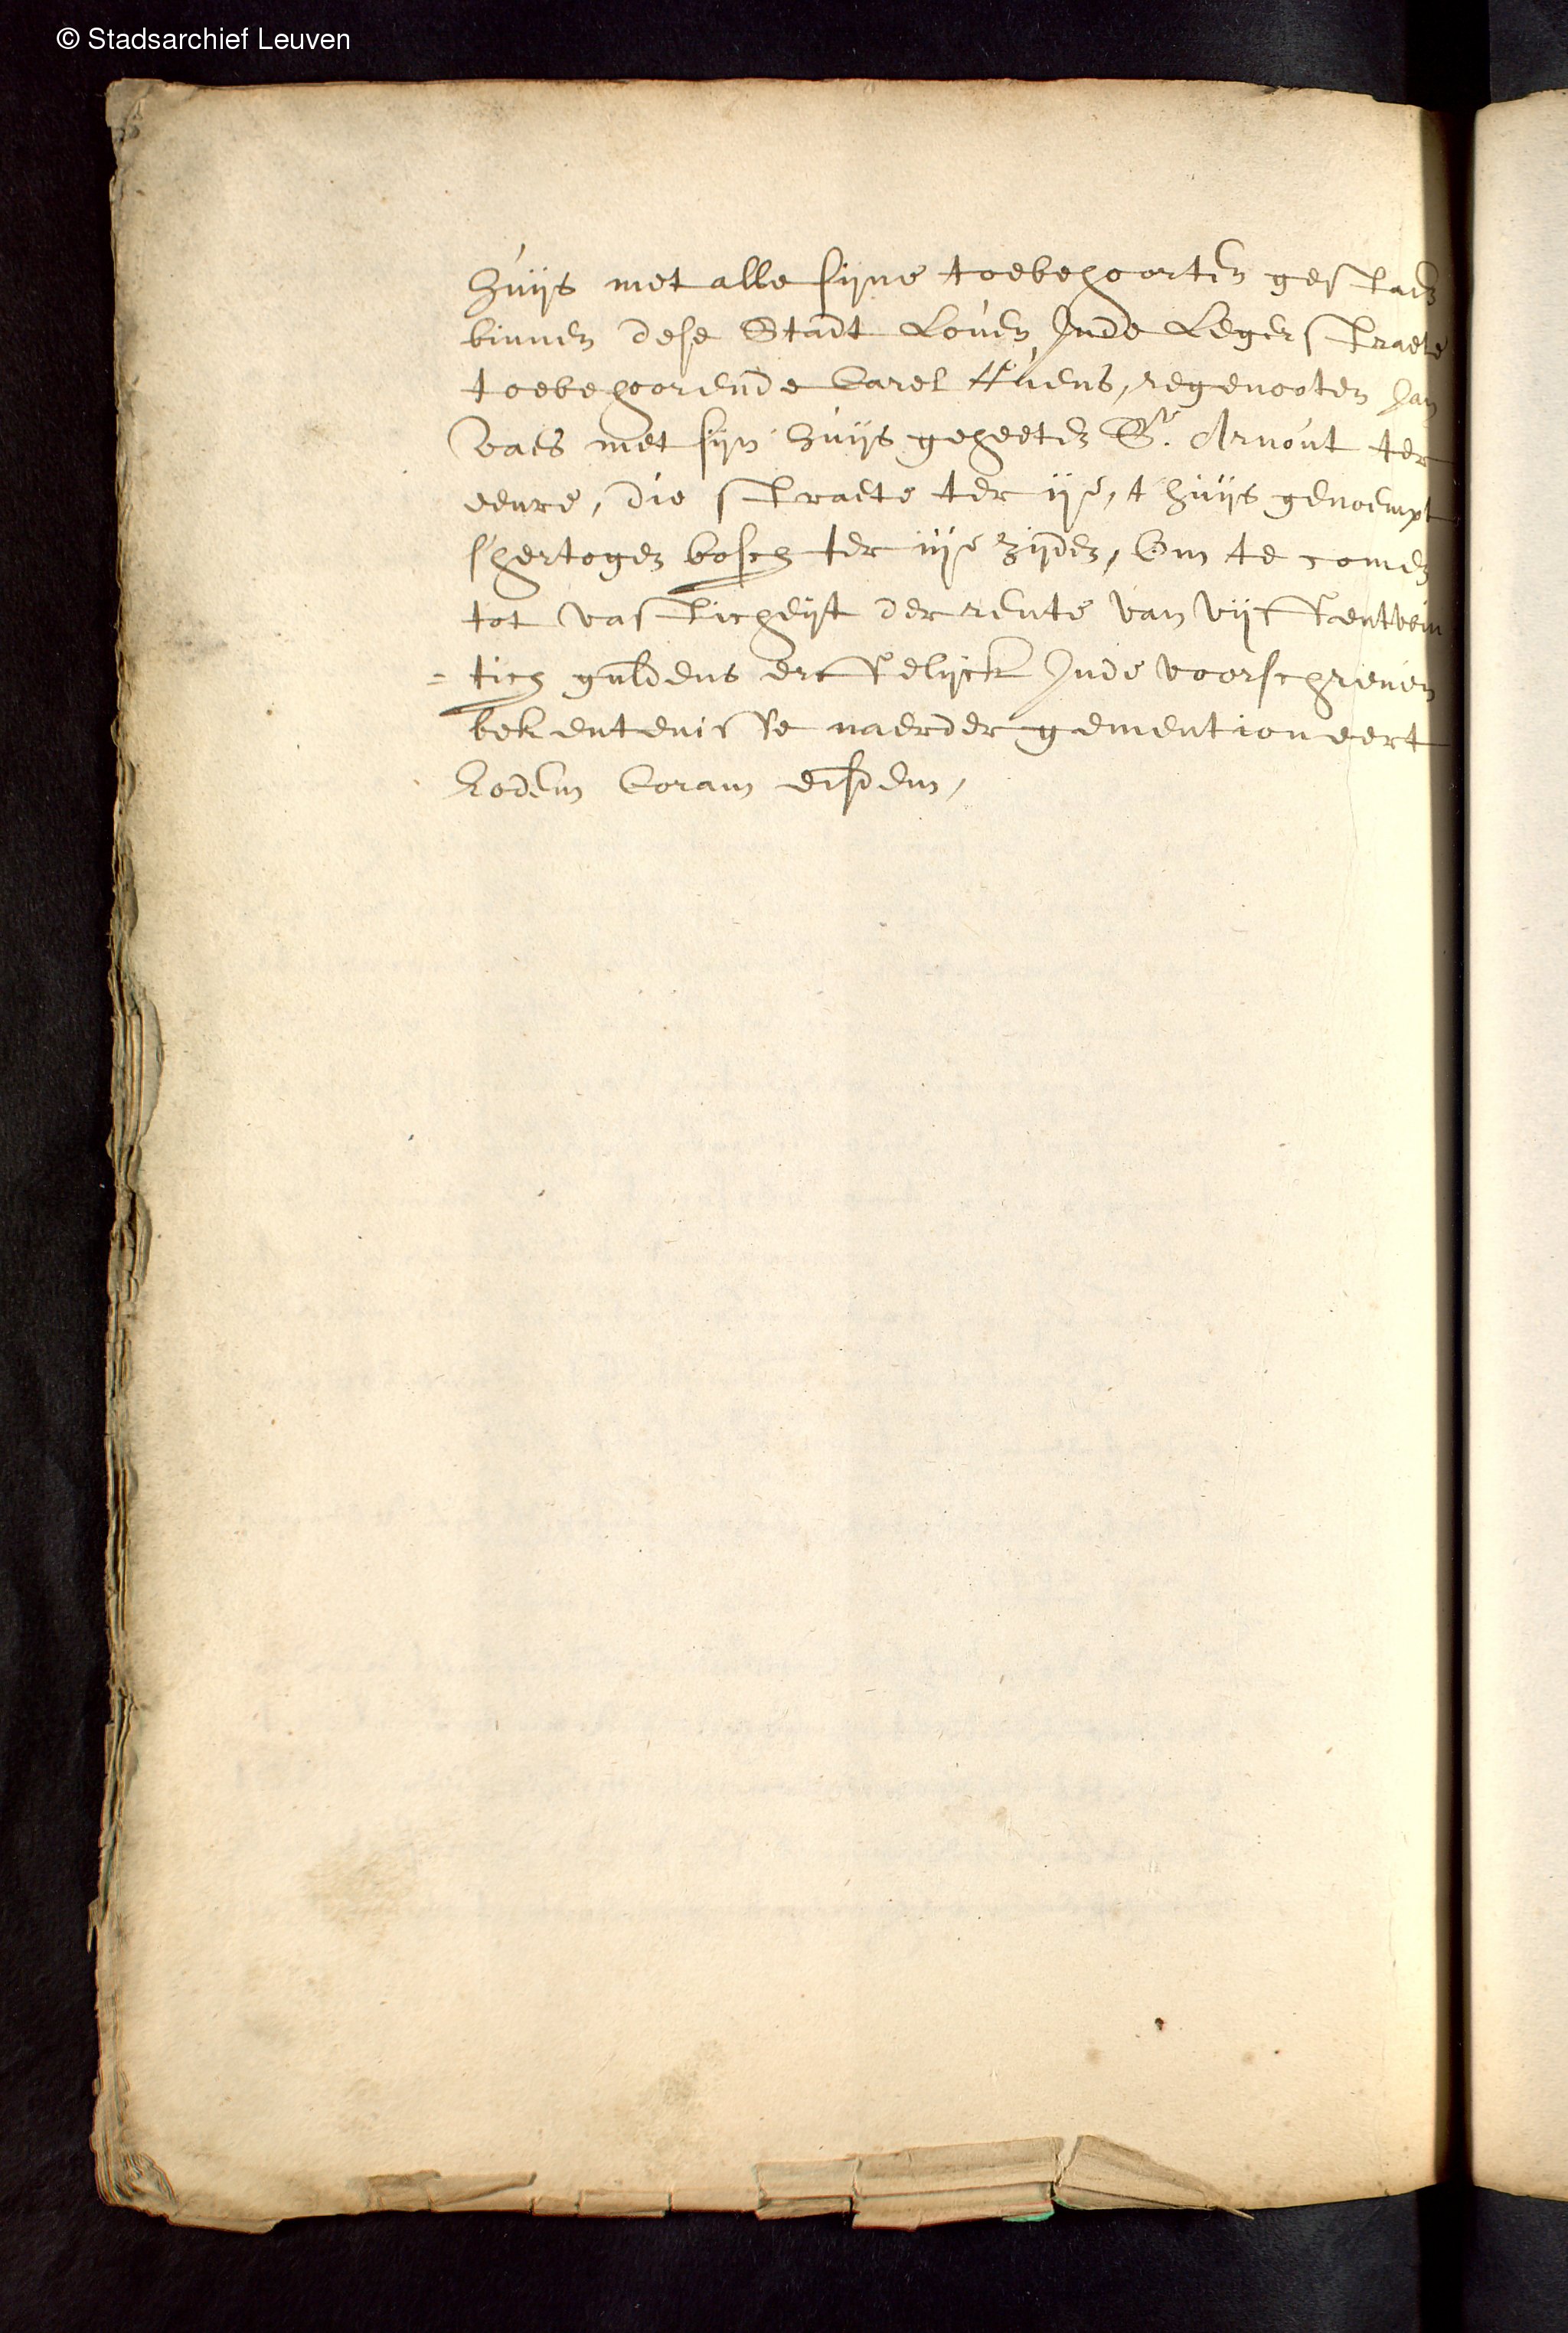 © Stadsarchief Leuven
huijs met alle sijne toebehoorten gestaen
binnen dese Stadt Loven Inde Legerstraete
toebehoorende Carel regenooten Jan
Vaes met sijn huijs geheeten St. Arnout ter
eenre, die straete ter ije, t huijs genoempt
sHertogen bosch ter iije zijden, Om te comen
tot vasticheijt der rente van vijffentwin
- tich guldens erffelijck Inde voorschreven
bekentenisse naerder gementioneert
Eodem Coram eisdem,